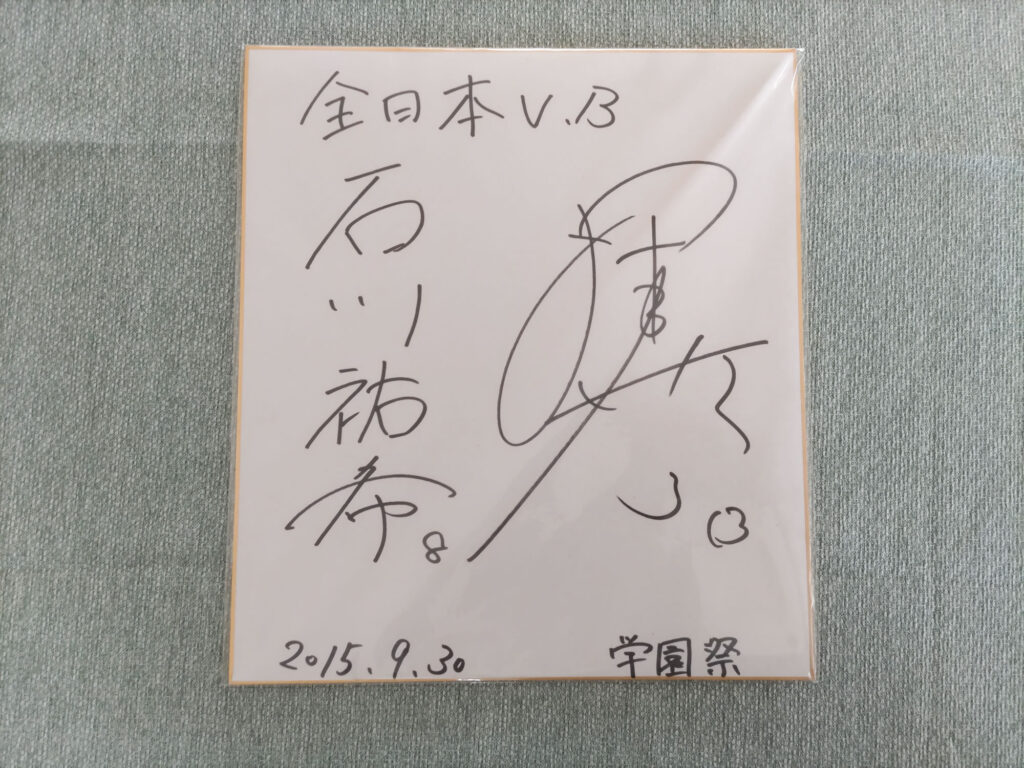 全日本V.B
石川祐希
8
2015.9.30
学園祭